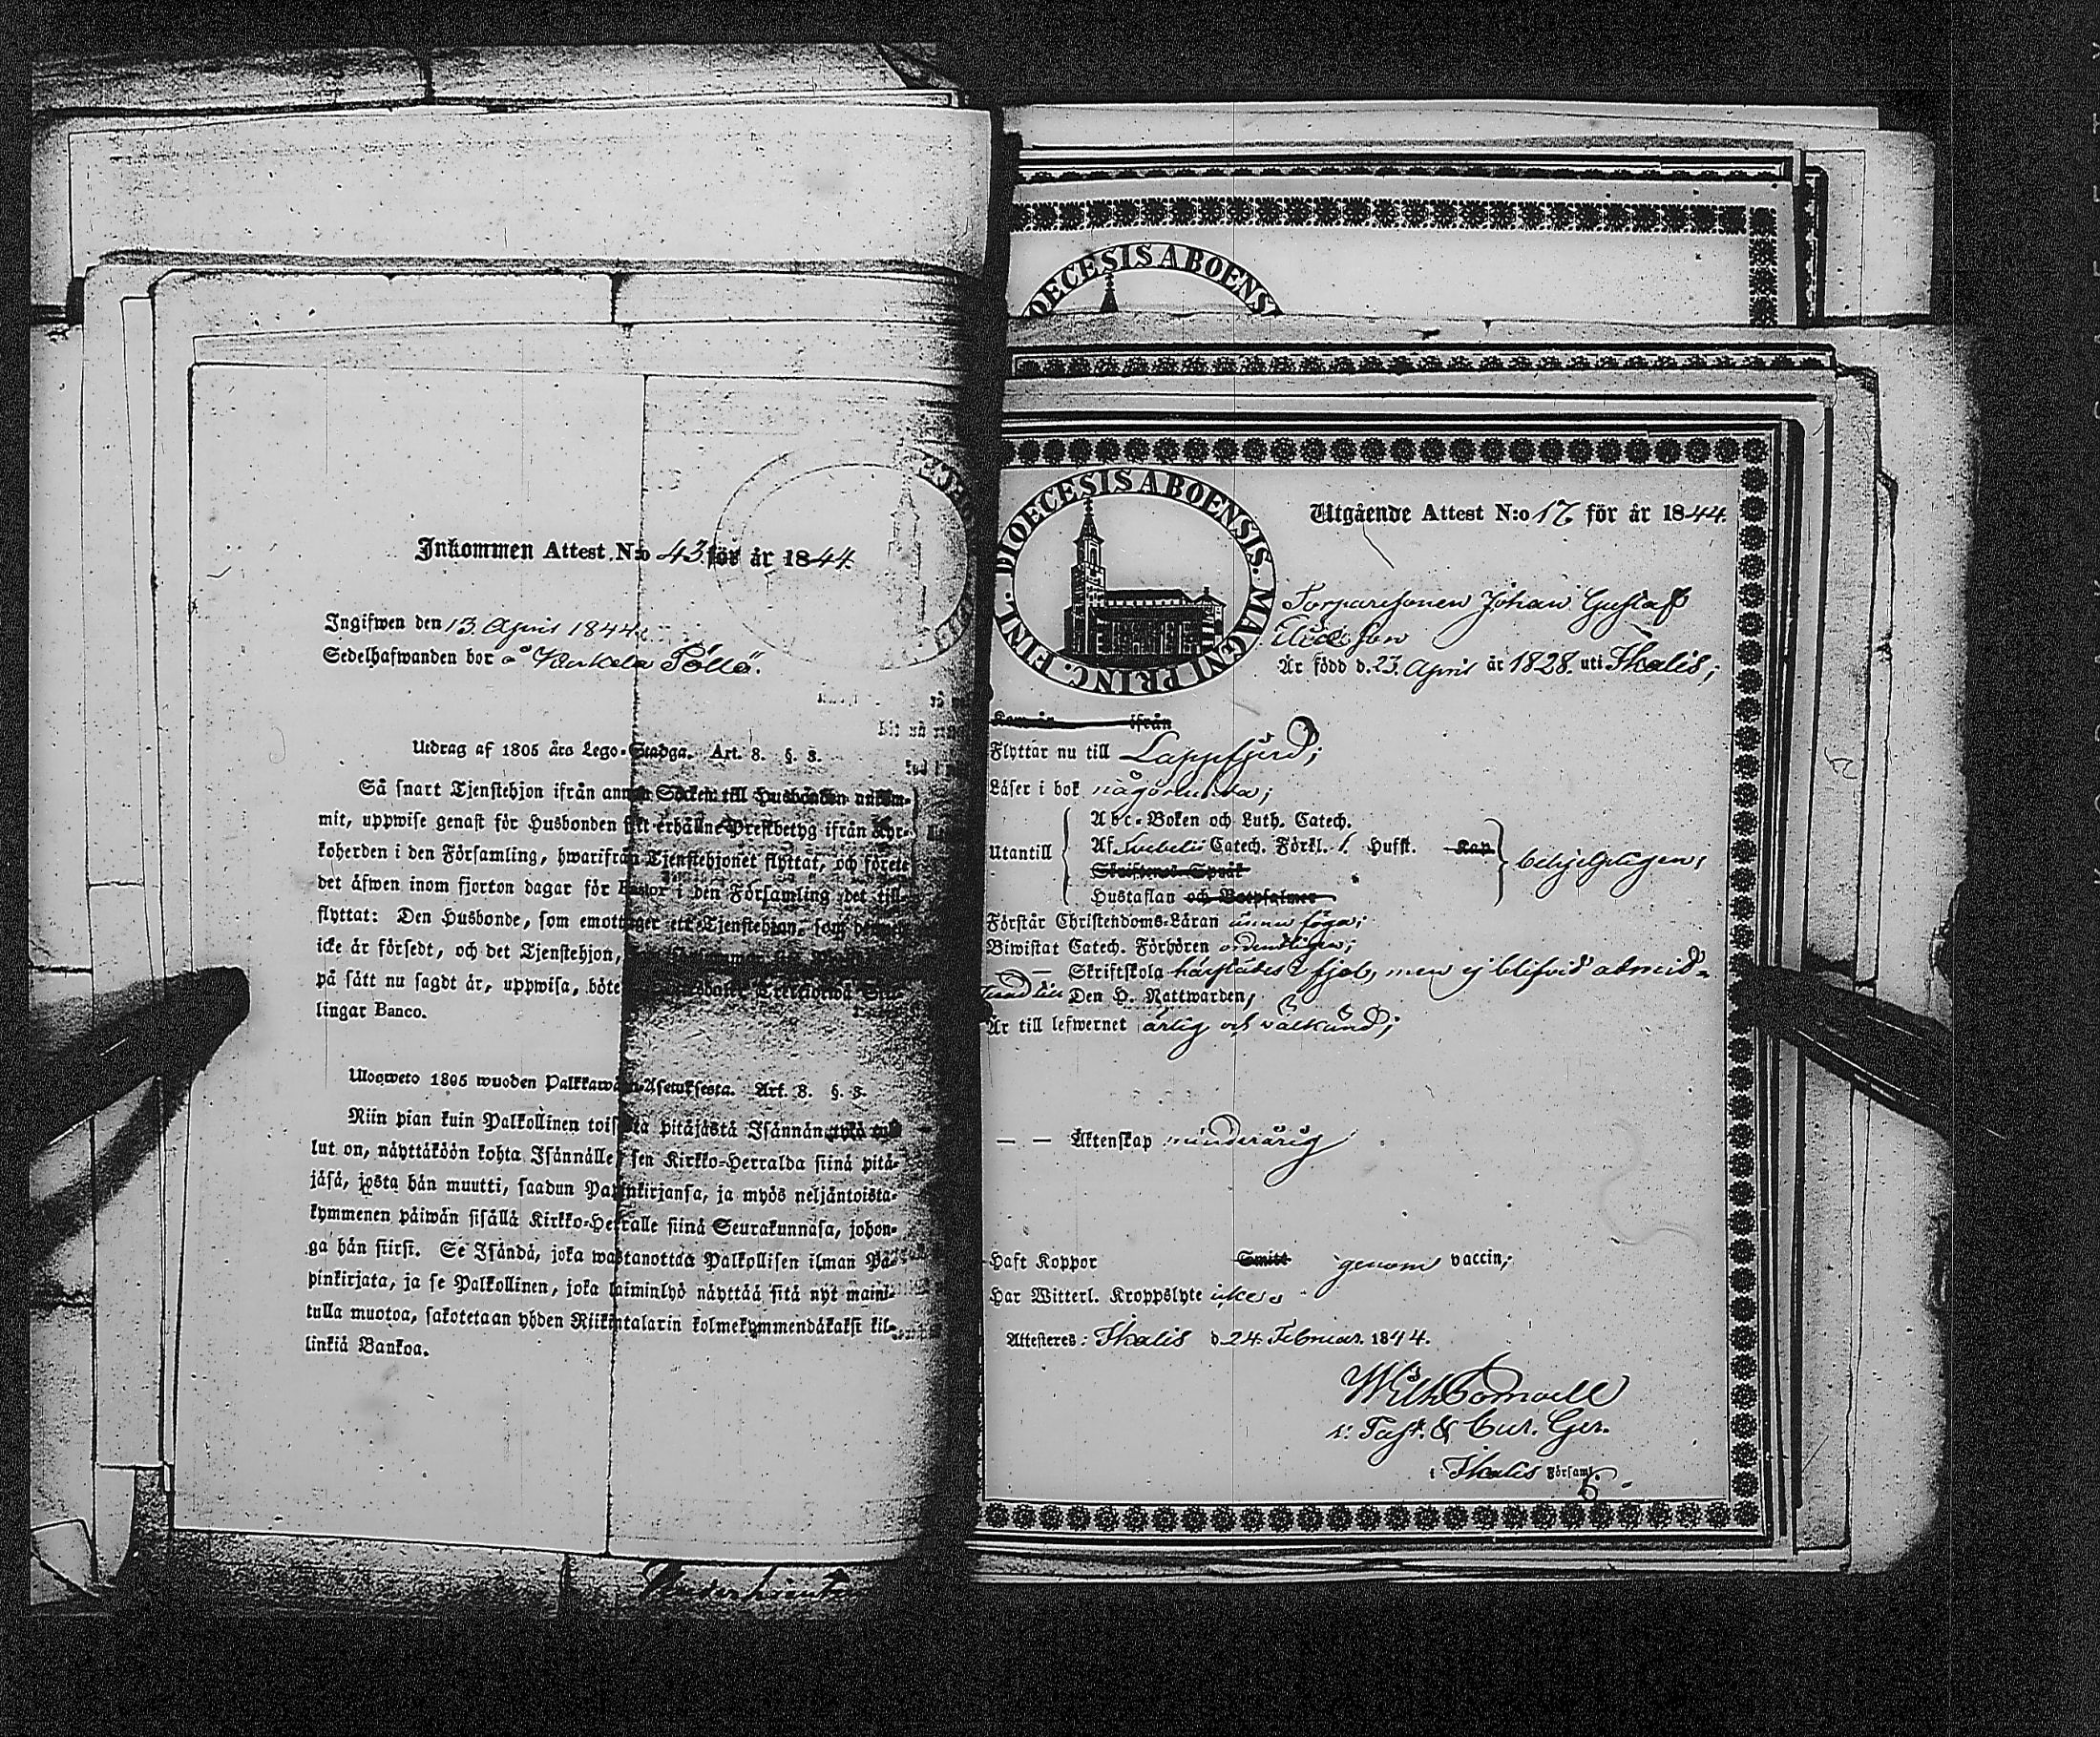 Inkommen Attest N:o 43 för år 1844.
Ingifwen den 13 April 1844.
Sedelhafwanden bor å
Utdrag af 1805 års Lego-Stadga. Art. 8. §. 3.
Så snart Tjenstehjon ifrån annan Socken till Husbonden ankom-
mit, uppwise genast för Husbonden sitt erhållne Prestbetyg ifrån Kyr-
koherden i den Församling, hwarifrån Tjenstehjonet flyttat, och förete
det äfwen inom fjorton dagar för Pastor i den Församling det till-
flyttat: Den Husbonde, som emottager ett Tjenstehjon, som dermed
icke är försedt, och det Tjenstehjon,
på sätt nu sagdt är, uppwisa, böte
lingar Banco.
Ulosweto 1805 wuoden Palkkawäen-Asetuksesta. Art. 8. §. 3.
Niin pian kuin Palkollinen toisesta pitäjästä Isännän tykö tul-
lut on, näyttäköön kohta Isännälle sen Kirkko-Herralda siinä pitä-
jäsä, josta hän muutti, saadun Papinkirjansa, ja myös neljäntoista-
kymmenen päiwän sisällä Kirkko-Herralle siinä Seurakunnasa, johon-
ga hän siirsi. Se Isändä, joka wastanottaa Palkollisen ilman Pa-
pinkirjata, ja se Palkollinen, joka laiminlyö näyttää sitä nyt maini-
tulla muotoa, sakotetaan yhden Riikintalarin kolmekymmendäkaksi kil-
linkiä Bankoa.
DIOECESIS ABOENS
DIOECESIS ABOENSIS. MAGNI PRINC. FINL.
Utgående Attest N:o 17 för år 1844.
Torparesonen Johan Gustaf
Är född d. 23 April år 1828. uti Ikalis;
Kom år ifrån
Flyttar nu till Lappfjerd;
Läser i bok någorlunda;
Utantill
Abc-Boken och Luth. Catech.
Af Svebelii Catech. Förkl. 1. Hufst. Kap.
Skriftenes Språk
Hustaflan och Botpsalmer
behjelpligen;
Förstår Christendoms-Läran ännu föga;
Biwistat Catech. Förhören ordentligen;
— — Skriftskola härstädes i fjol, men ej blifvid admid-
terad till Den H. Nattwarden;
Är till lefwernet ärlig och välkänd;
— — Äktenskap minderårig
Haft Koppor Smitt genom vaccin;
Har Witterl. Kroppslyte icke.
Attesteres: Ikalis d. 24 Februar. 1844.
i Ikalis Församl.